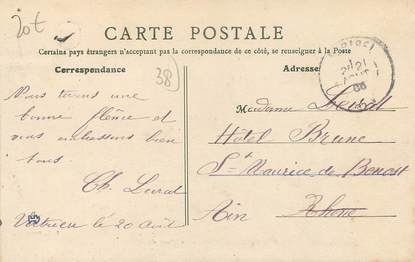 20t
CARTE POSTALE
Certains pays étrangers n'acceptant pas la correspondance de ce côté, se renseigner à la Poste
Correspondance
38
Adresse
MIRIBEL
21
AOUT
06
Nous tenons une
bonne flême et
vous embrassons bien
tous.
Ch. Leval
Vertrieu le 20 Août
Madame Leval
Hôtel Brune
St Maurice de Beynost
Ain Rhône